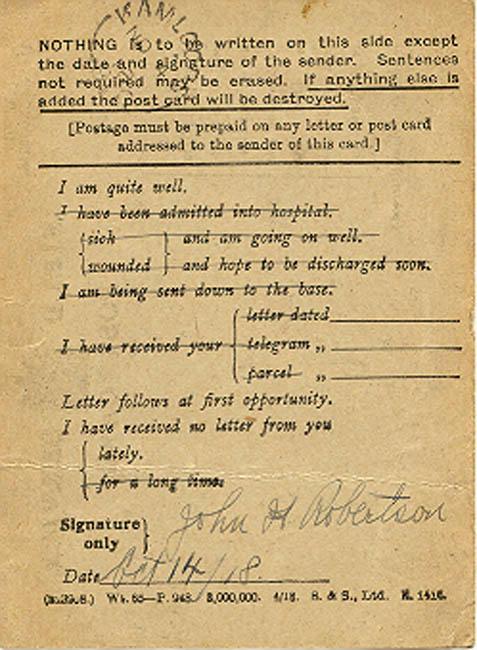 NOTHING is to be written on this side except
the date and signature of the sender. Sentences
not required may be erased. If anything else is
added the post card will be destroyed.
[Postage must be prepaid on any letter or post card
addressed to the sender of this card.]
I am quite well.
I have been admitted into hospital.
sick and am going on well.
wounded and hope to be discharged soon.
I am being sent down to the base.
letter dated
I have received your telegram „
parcel „
Letter follows at first opportunity.
I have received no letter from you
lately.
for a long time.
Signature
only
John H Robertson
Date Oct 14/18.
Wt. 65—P. 948. 8,000,000. 4/18. S. & S., Ltd. E. 1416.